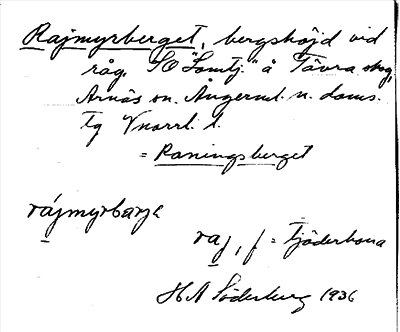 Rajmyrberget, bergshöjd vid
råg. SO "Lomtj." å Tävra skog,
Arnäs sn. Ångerml. n. doms.
tg Vnorrl. l.
= Raningsberget
rájmyrbærje
raj, f = tjäderhona
H A Söderberg 1936